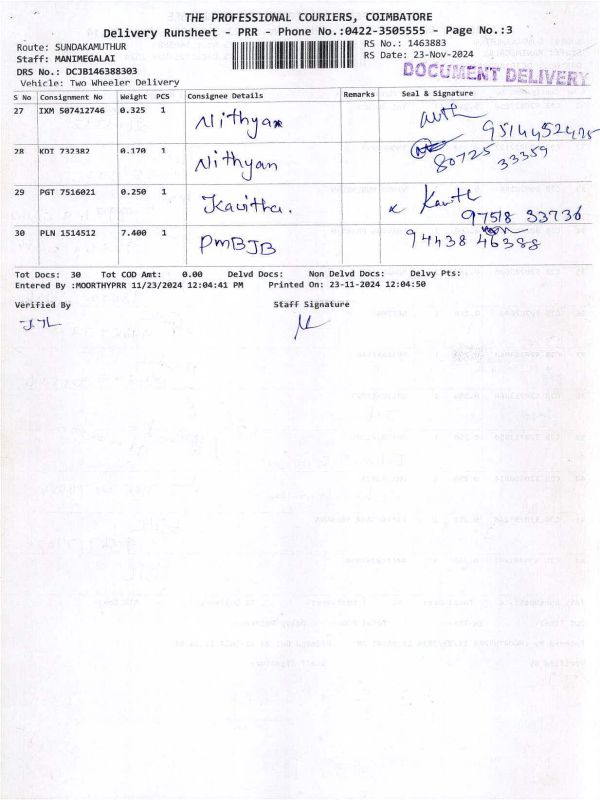 THE PROFESSIONAL COURIERS, COIMBATORE
Delivery Runsheet - PRR - Phone No.:0422-3505555 - Page No.:3
Route: SUNDAKAMUTHUR RS No.: 1463883
Staff: MANIMEGALAI RS Date: 23-Nov-2024
DRS No.: DCJB146388303 DOCUMENT DELIVERY
Vehicle: Two Wheeler Delivery
S No Consignment No Weight PCS Consignee Details Remarks Seal & Signature
27 IXM 507412746 0.325 1 Nithyan
28 KDI 732382 0.170 1 Nithyan 80725 33359
29 PGT 7516021 0.250 1 Kavitha. x 97518 33736
30 PLN 1514512 7.400 1 PMBJB 94438 46388
Tot Docs: 30 Tot COD Amt: 0.00 Delvd Docs: Non Delvd Docs: Delvy Pts:
Entered By :MOORTHYPRR 11/23/2024 12:04:41 PM Printed On: 23-11-2024 12:04:50
Verified By Staff Signature